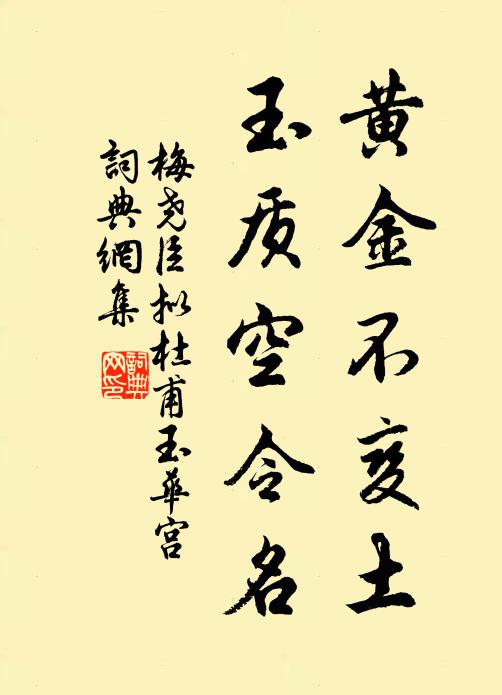 黄金不变土
玉质空令名
梅尧臣拟杜甫玉華宫
詞典網集
詞典网印